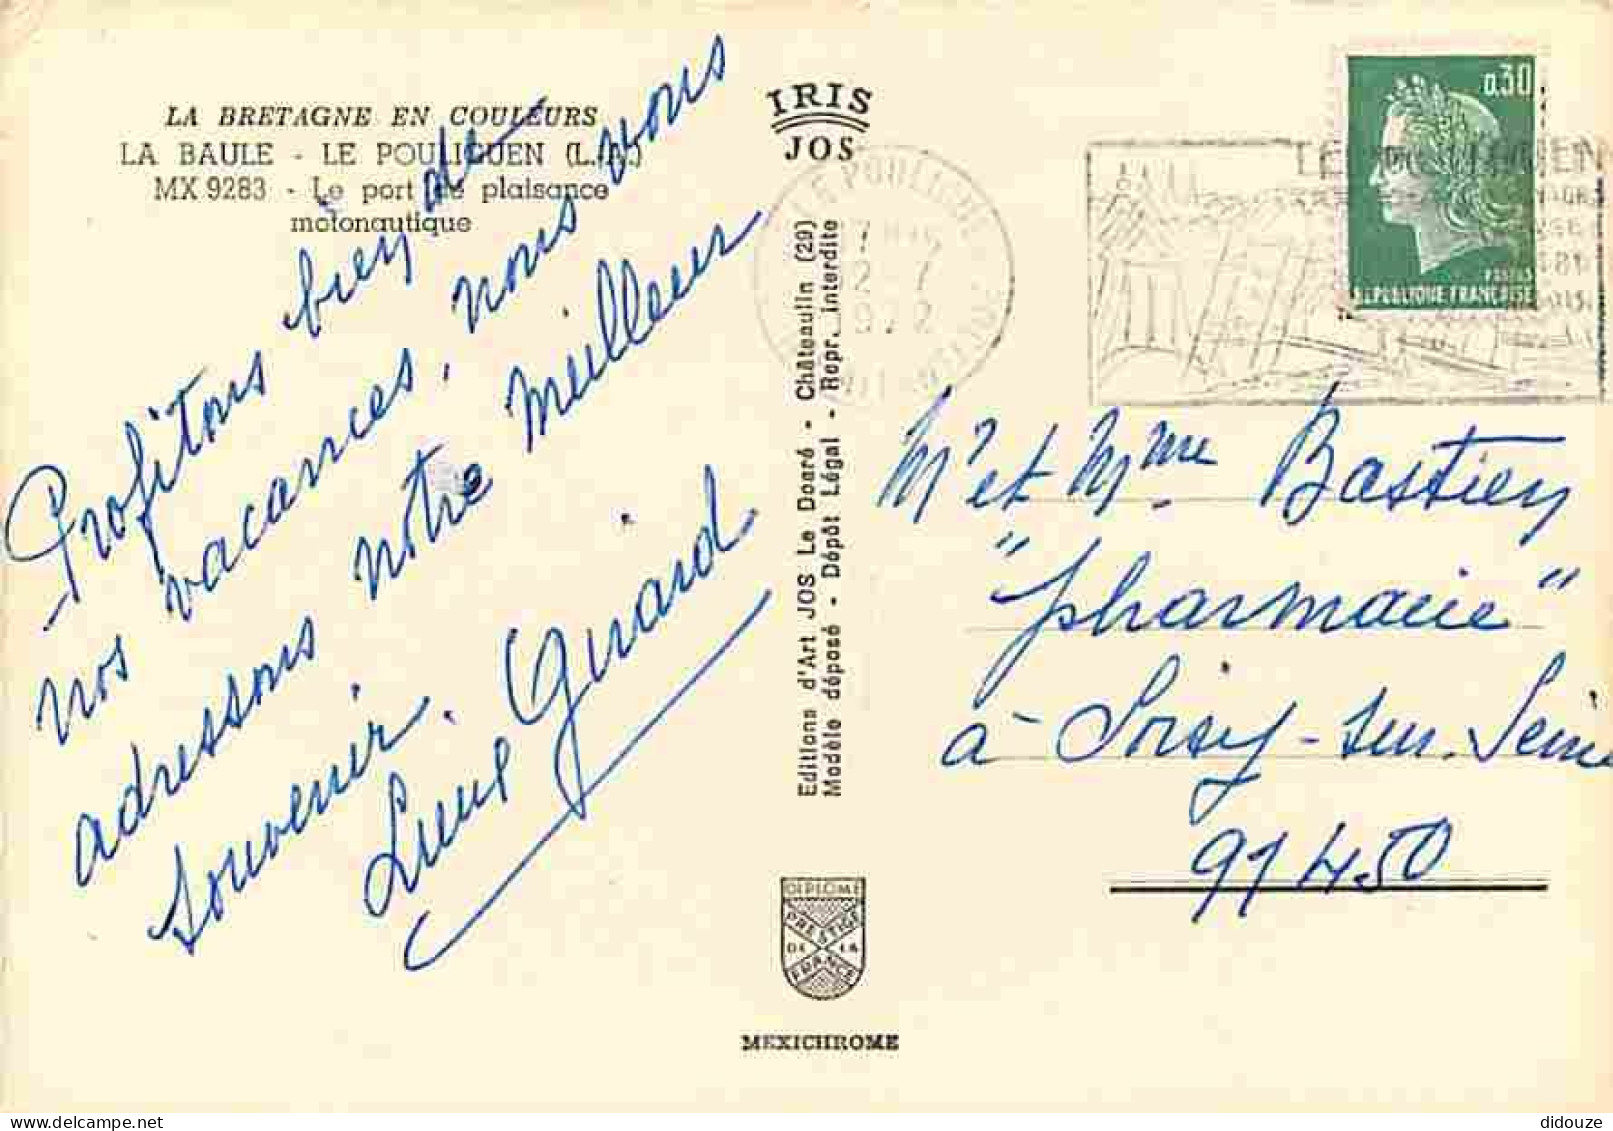 LA BRETAGNE EN COULEURS
LA BAULE - LE POULIGUEN (L.-A.)
MX 9283 - Le port de plaisance
motonautique
Profitons bien de
nos vacances, nous vous
adressons notre meilleur
souvenir.
Girard
IRIS
JOS
Editions d'Art JOS Le Doaré - Châteaulin (29)
Modèle déposé - Dépôt Légal - Repr. interdite
DIPLOME
PRESTIGE
DE LA
FRANCE
MEXICHROME
LE POULIGUEN
LOIRE ATLANTIQUE
0,30
POSTES
REPUBLIQUE FRANÇAISE
Mr et Mme Bastien
"pharmacie"
à Soisy-sur-Seine
91450
didouze